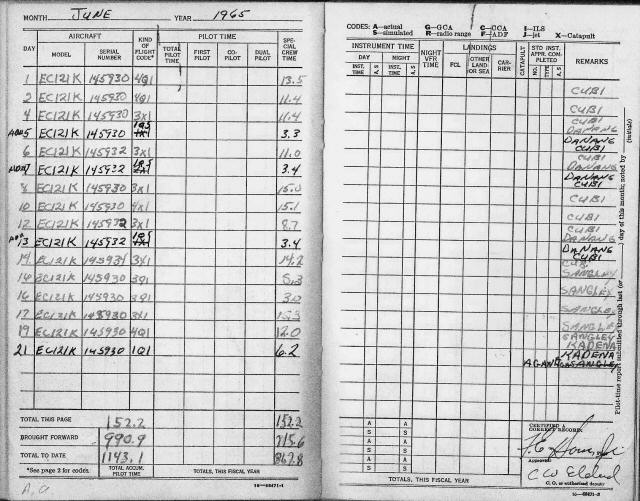 MONTH JUNE YEAR 1965
AIRCRAFT KIND OF FLIGHT CODE* PILOT TIME SPECIAL CREW TIME
DAY MODEL SERIAL NUMBER TOTAL PILOT TIME FIRST PILOT CO-PILOT DUAL PILOT
1 EC121K 145930 4Q1 13.5
2 EC121K 145930 4Q1 11.4
4 EC121K 145930 3X1 11.4
5 EC121K 145930 3.3
6 EC121K 145932 3X1 11.0
7 EC121K 145932 3.4
8 EC121K 145930 3X1 15.0
10 EC121K 145930 4X1 15.1
12 EC121K 145932 3X1 8.7
13 EC121K 145932 3.4
14 EC121K 145931 3X1 14.2
14 EC121K 145930 3Q1 5.3
16 EC121K 145930 3Q1 3.0
17 EC121K 145930 3X1 15.3
19 EC121K 145930 4Q1 12.0
21 EC121K 145930 1Q1 6.2
TOTAL THIS PAGE 152.2 152.2
BROUGHT FORWARD 990.9 715.6
TOTAL TO DATE 1143.1 867.8
*See page 2 for codes. TOTAL ACCUM. PILOT TIME TOTALS, THIS FISCAL YEAR
16—68471-1
CODES: A—actual G—GCA C—CCA I—ILS
S—simulated R—radio range F—ADF J—jet X—Catapult
INSTRUMENT TIME NIGHT VFR TIME LANDINGS CATAPULT STD INST. APPR. COMPLETED REMARKS
DAY NIGHT FCL OTHER LAND OR SEA CARRIER NO. TYPE A, S
INST. TIME A, S INST. TIME A, S
CUBI
CUBI
CUBI
DANANG
DANANG
CUBI
CUBI
DANANG
DANANG
CUBI
CUBI
CUBI
CUBI
DANANG
DANANG
CUBI
CUBI
SANGLEY
SANGLEY
SANGLEY
SANGLEY
SANGLEY
KADENA
KADENA
Pilot-time report submitted through last (or ) day of this month; noted by (initials)
A A
S S
A A
S S
A A
S S
TOTALS, THIS FISCAL YEAR
CERTIFIED A CORRECT RECORD:
APPROVED:
C. O. or authorized deputy